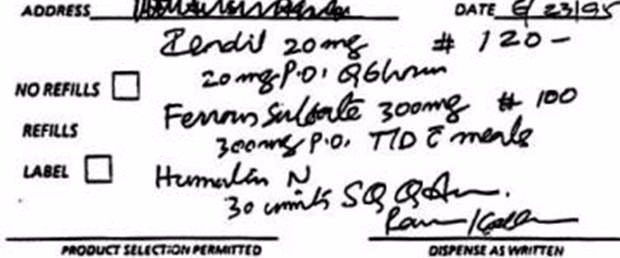 ADDRESS DATE 6/23/95
20 mg # 120 -
20 mg P.O. Q6hours
NO REFILLS
Ferrous Sulfate 300mg # 100
REFILLS
300mg P.O. TID c̄ meals
LABEL
Humulin N
30 units SQ QAm.
PRODUCT SELECTION PERMITTED DISPENSE AS WRITTEN